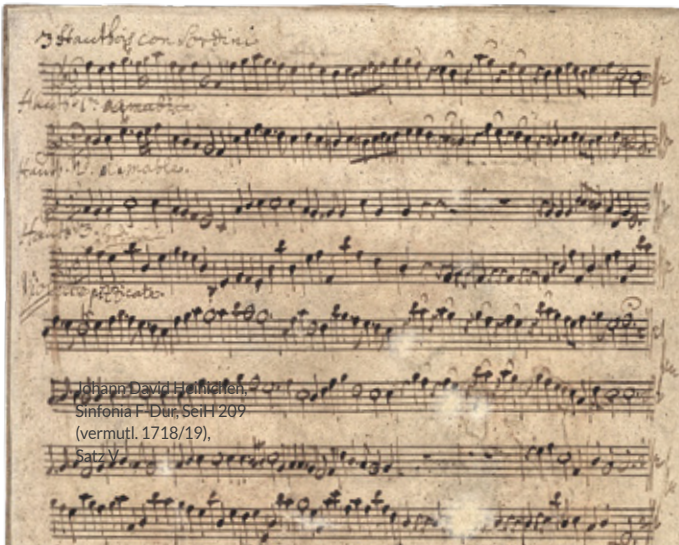 3 Hautbois con Sordini
Hautb. 1. amabile.
Hautb. 2. amabile.
Hautb. 3.
pizzicato.
Johann David Heinichen,
Sinfonia F-Dur, SeiH 209
(vermutl. 1718/19),
Satz V